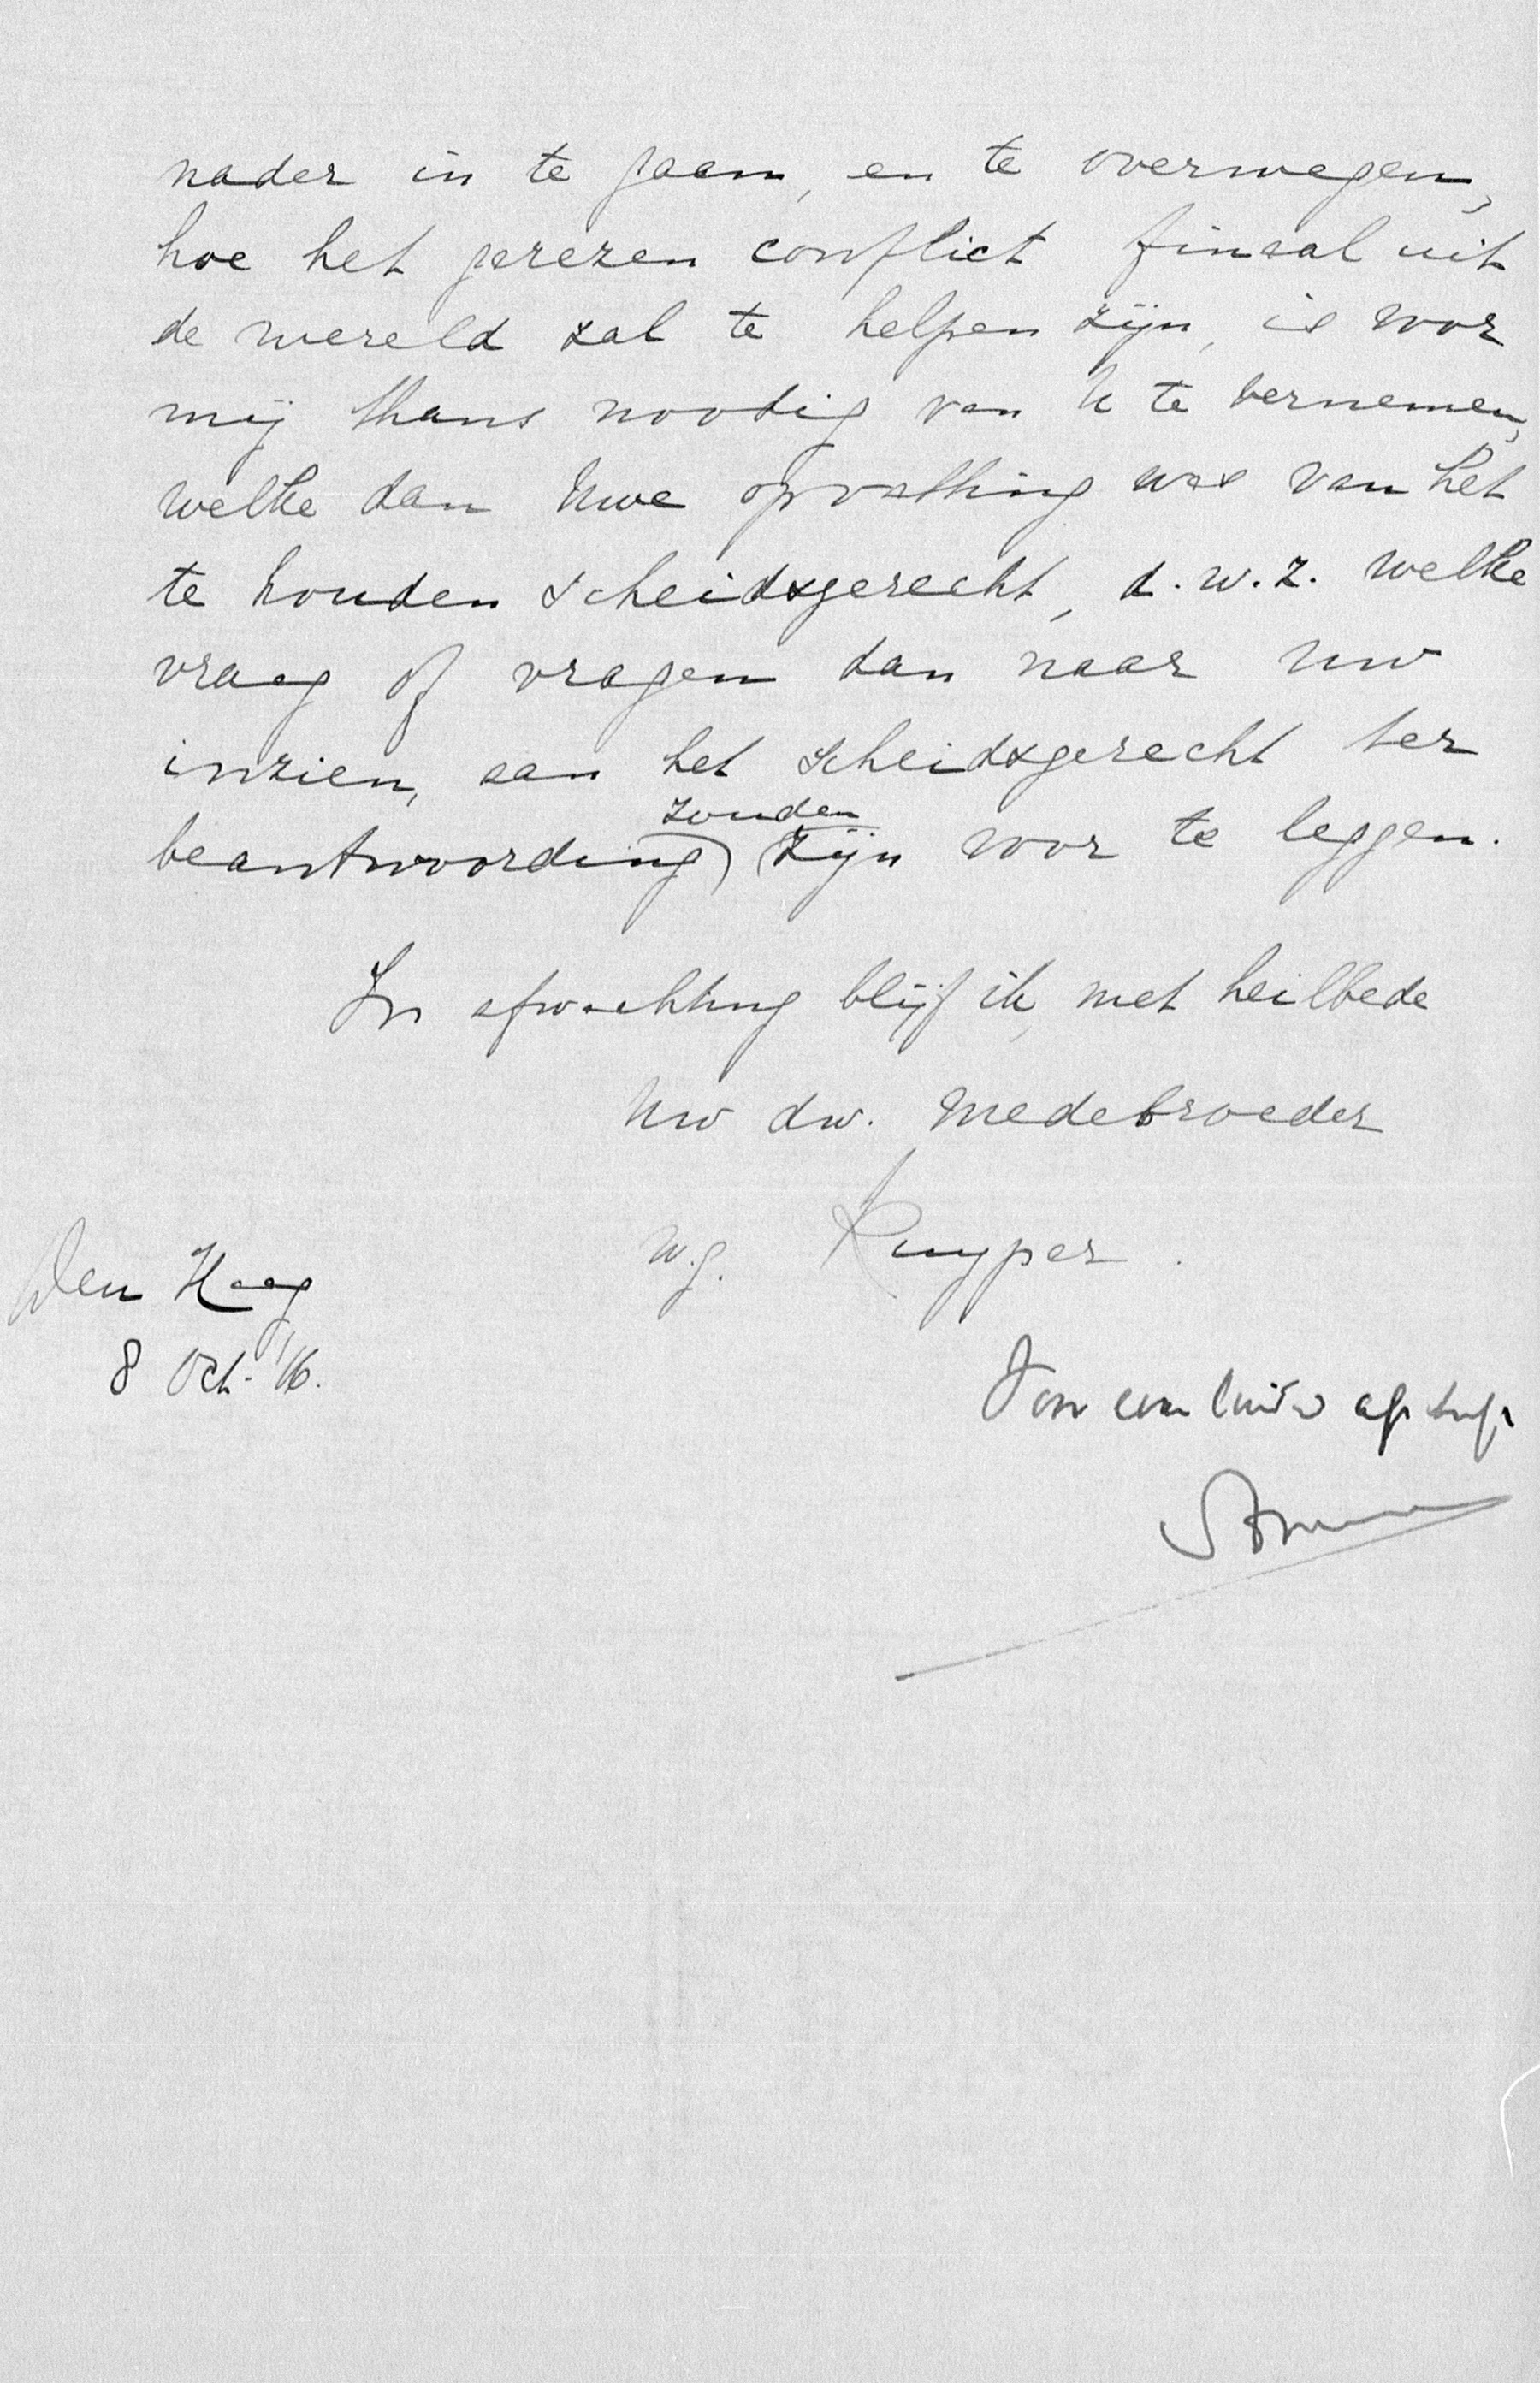 nader in te gaan, en te overwegen,
hoe het gerezen conflict finaal uit
de wereld zal te helpen zijn, is voor
mij thans noodig van U te vernemen,
welke dan Uwe opvatting was van het
te houden scheidsgerecht, d.w.z. welke
vraag of vragen dan naar uw
inzien, aan het scheidsgerecht ter
zouden
beantwoording zijn voor te leggen.
In afwachting blijf ik, met heilbede
Uw dw. medebroeder
w.g. Kuyper.
Den Haag
8 Oct. '16.
Voor eensluidend afschrift